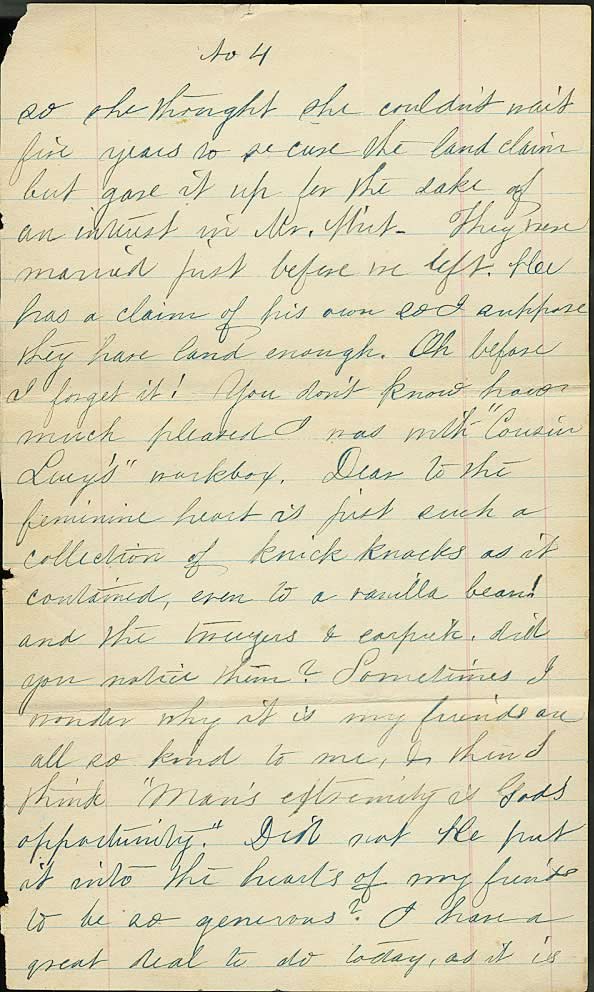 No 4
so she thought she couldn't wait
five years to secure the land claim
but gave it up for the sake of
an interest in Mr. They were
married just before we left. He
has a claim of his own so I suppose
they have land enough. Oh before
I forget it! You don't know how
much pleased I was with "Cousin
Lucy's" workbox. Dear to the
feminine heart is just such a
collection of knick knacks as it
contained, even to a vanilla bean!
and the tweezers & earpick. did
you notice them? Sometimes I
wonder why it is my friends are
all so kind to me, & then I
think "Man's extremity is Gods
opportunity." Did not He put
it into the hearts of my friends
to be so generous? I have a
great deal to do today, as it is